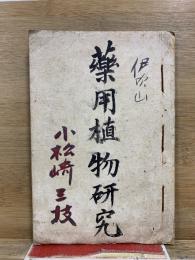 伊吹山
藥用植物研究
小松崎三技